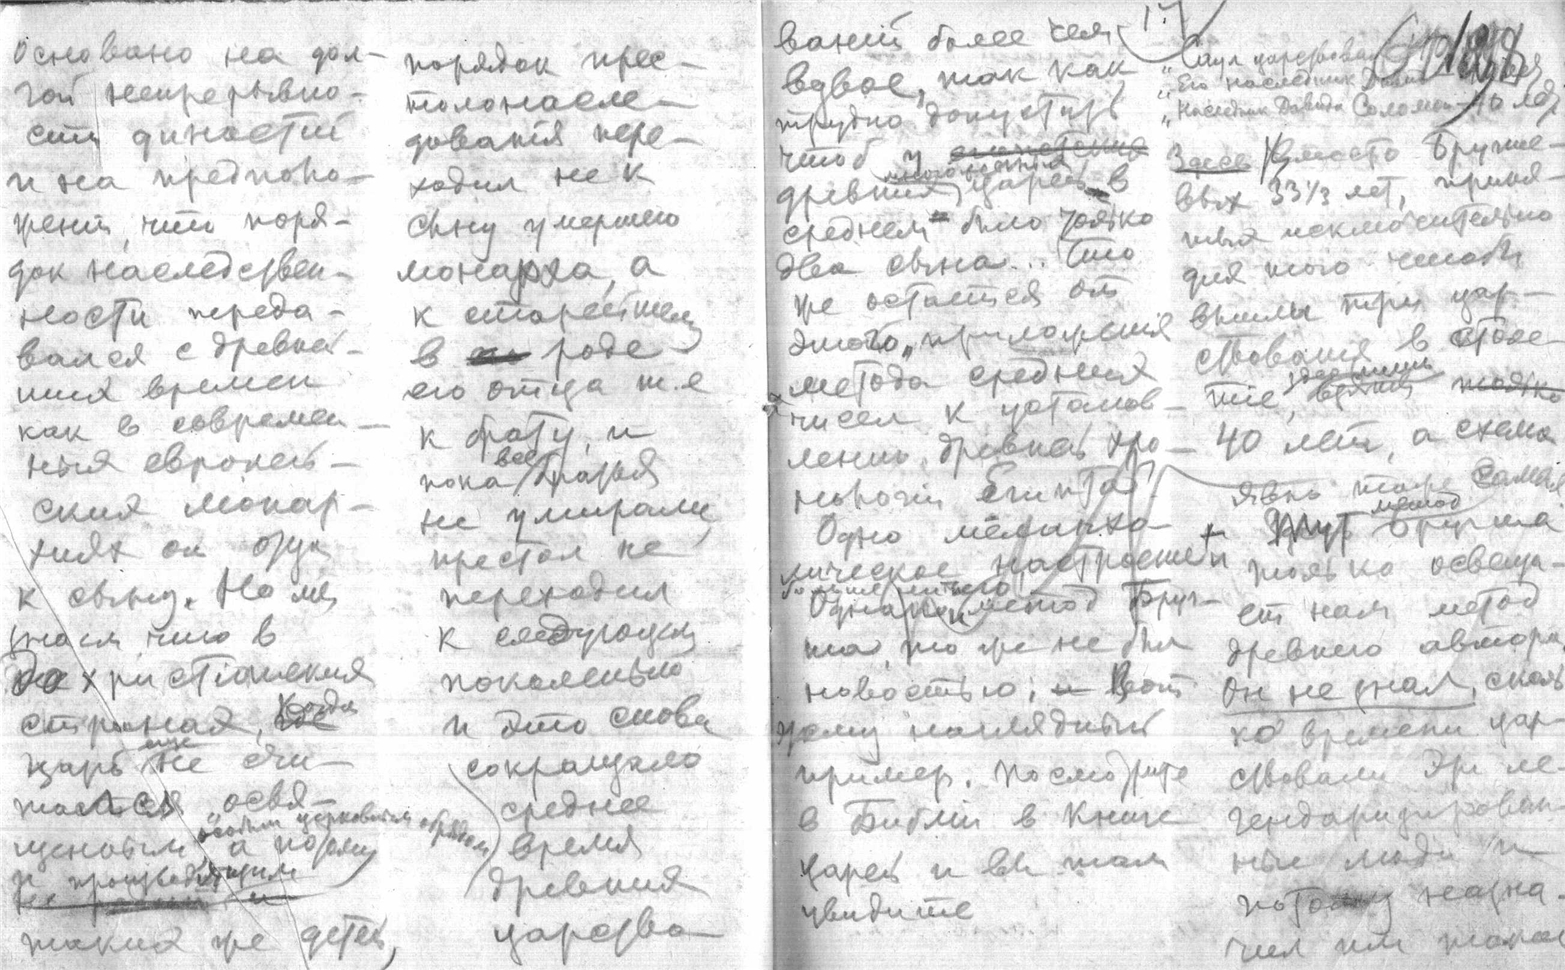 основано на дол-
гой непрерывно-
сти династий
и на предполо-
жении, что поря-
док наследствен-
ности переда-
вался с древней-
ших времен
как в современ-
ных европей-
ских монар-
хиях от отца
к сыну. Но мы
знаем, что в
до христианских
странах, когда
царь еще не счи-
тался освя-
щенным особым церковным обрядом,
а потому
и производящим
не
таких же детей,
порядок прес-
толонасле-
дования пере-
ходил не к
сыну умершего
монарха, а
к старейшему
в роде
его отца т.е
к брату, и
пока все братья
не умирали,
престол не
переходил
к следующему
поколению
и это снова
сокращало
среднее
время
древних
царство-
ваний более чем
вдвое, так как
трудно допустить
чтоб у
древних многоженных царей в
среднем было только
два сына... Что
же остается от
этого „приложения
метода средних
чисел к установ-
лению древней хро-
нологии Египта?
Одно меланхо-
лическое настроение и
больше ничего
Однако и метод Бруг-
ша, тоже не был
новостью; Вот
тому наглядный
пример. Посмотрите
в Библии в Книге
царей и вы там
увидите
17
„Саул царствовал
„Его наследник Давид
„Наследник Давида Соломон — 40 лет
Здесь вместо Бругше-
вых 33 1/3 лет, приня-
тых исключительно
для того чтобы
вышли три цар-
ствования в столе-
тие, взяты только
40 лет, а схема
явно та же самая
+ Тут метод Бругша
только освеща-
ет нам метод
древнего автора.
Он не знал, сколь-
ко времени цар-
ствовали эти ле-
гендаризирован-
ные люди и
потому назна-
чил им